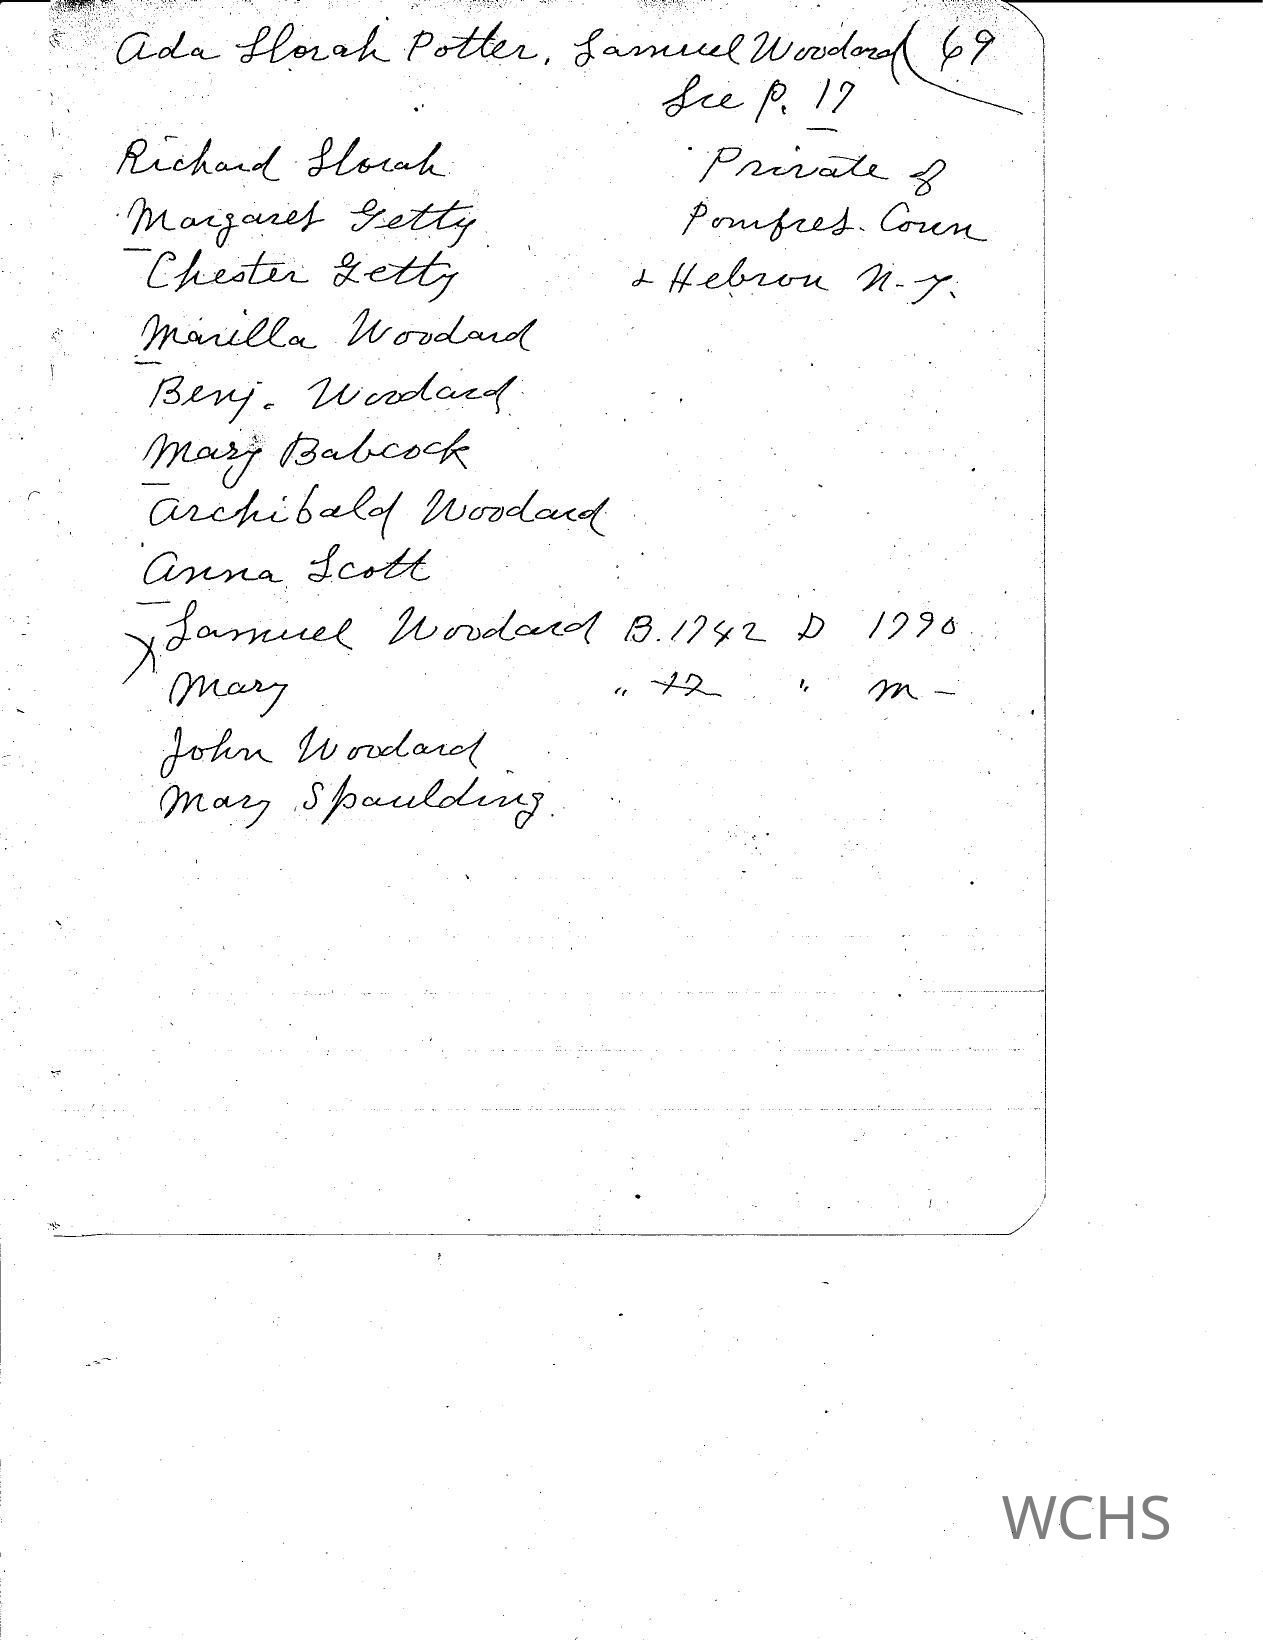 Ada Slorah Potter, Samuel Woodard 69
See P. 17
Richard Slorah Private of
Margaret Getty Pomfret. Conn
Chester Getty & Hebron N.Y.
Marilla Woodard
Benj. Woodard
Mary Babcock
Archibald Woodard
Anna Scott
Samuel Woodard B. 1742 D 1790
Mary " " M -
John Woodard
Mary Spaulding.
WCHS